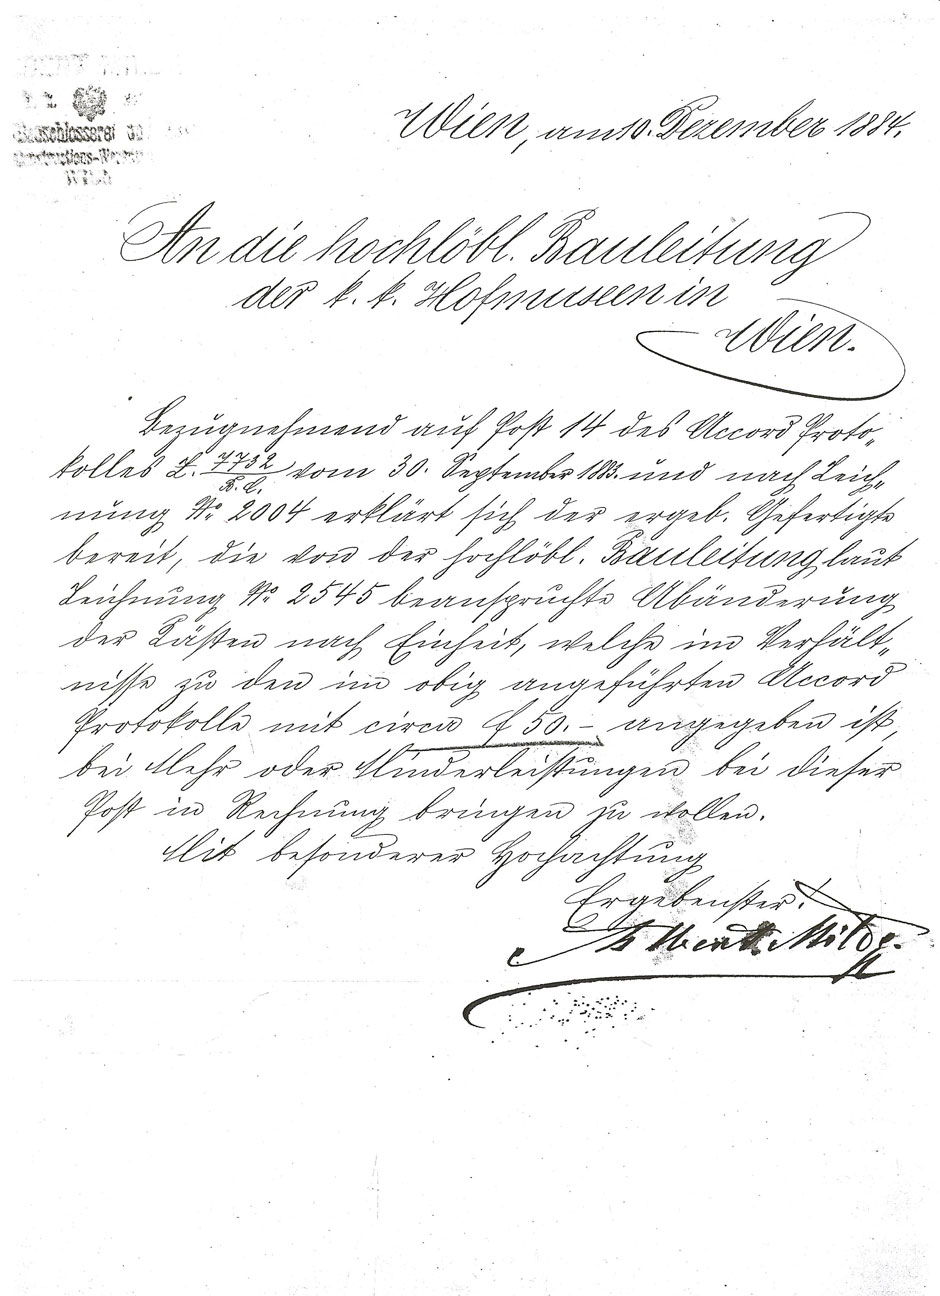 Bauschlosserei
Constructions-
Wien
Wien, am 10. Dezember 1884.
An die hochlöbl. Bauleitung
der k. k. Hofmuseen in
Wien.
Bezugnehmend auf Post 14 des Accord Proto-
kolles Z. 7732/B.C. vom 30. September 1883. und nach Zeich-
nung No. 2004 erklärt sich der ergeb. Gefertigte
bereit, die von der hochlöbl. Bauleitung laut
Zeichnung No. 2545 beanspruchte Abänderung
der Kästen nach Einheit, welche im Verhält-
nisse zu den im obig angeführten Accord
Protokolle mit circa f 50.- angegeben ist,
bei Mehr oder Minderleistungen bei dieser
Post in Rechnung bringen zu wollen.
Mit besonderer Hochachtung
Ergebenster.
Albert Milde